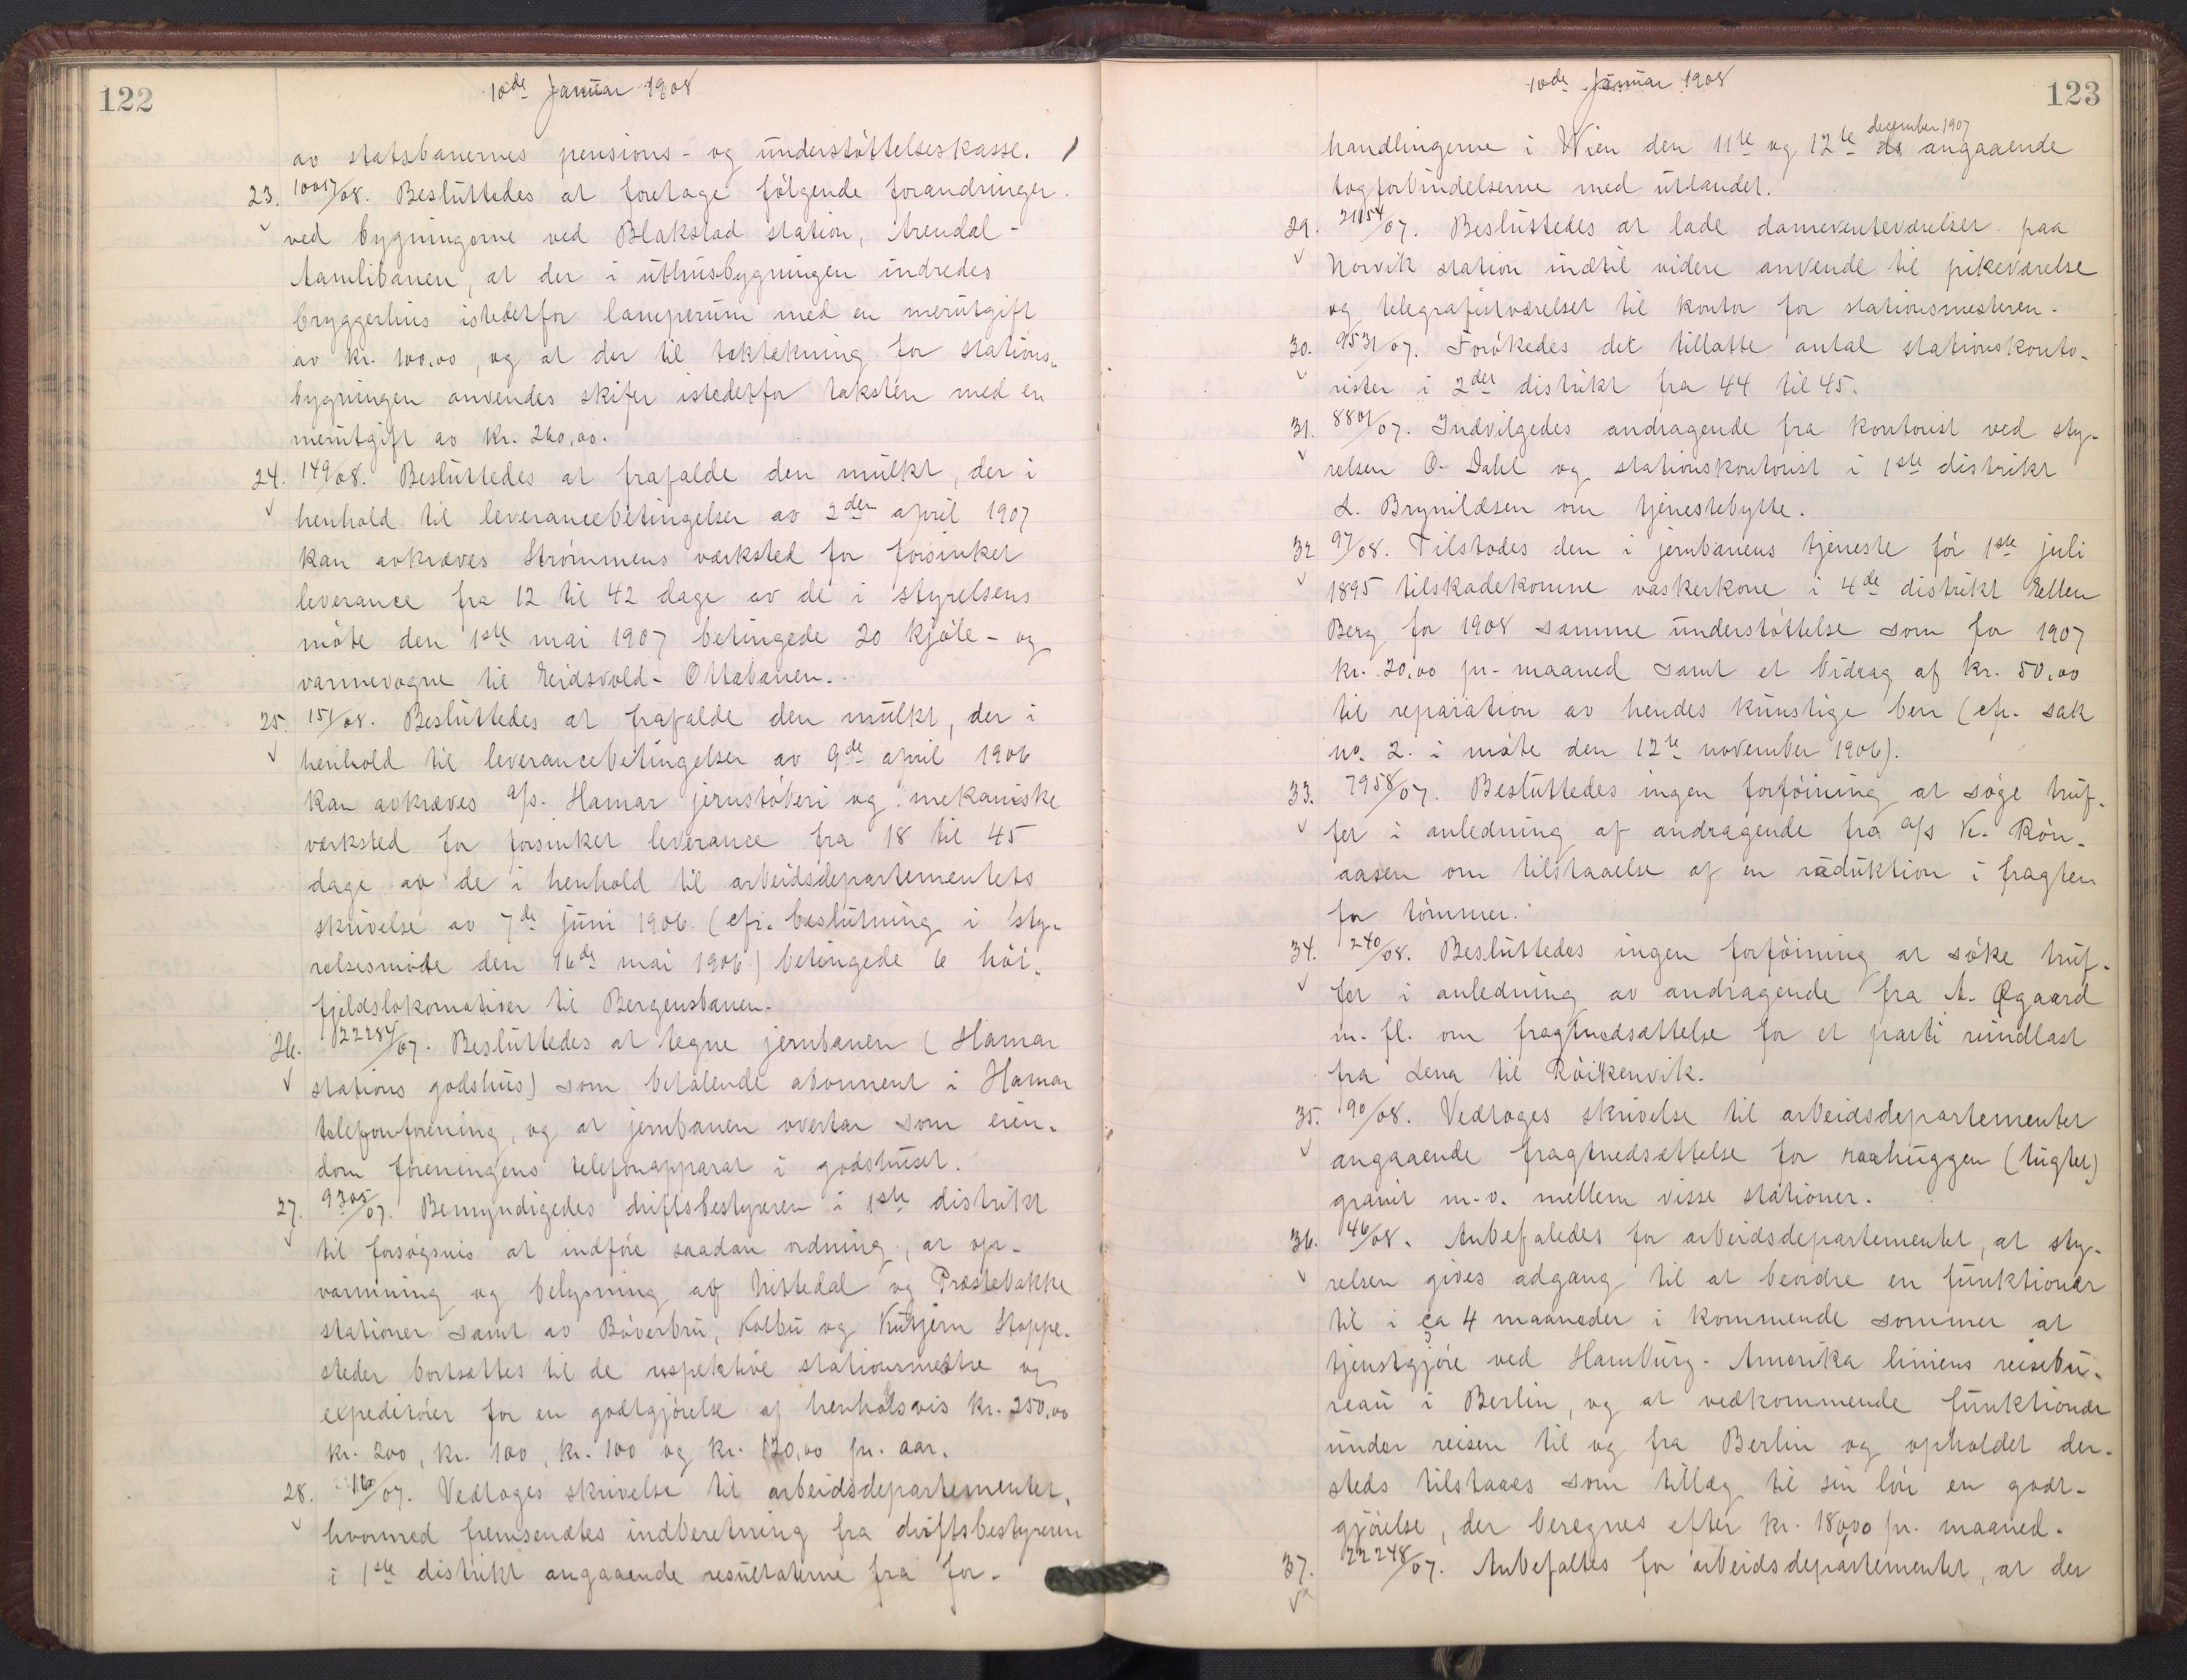 122
10de Januar 1908
av statsbanernes pensions- og understøttelseskasse.
23. 10017/08. Besluttedes at foretage følgende forandringer
ved bygningerne ved Blakstad station, Arendal-
Aamlibanen, at der i uthusbygningen indredes
bryggerhus istedetfor lamperum med en merutgift
av kr. 100,00, og at der til taktækning for stations-
bygningen anvendes skifer istedetfor taksten med en
merutgift av kr. 260,00.
24. 149/08. Besluttedes at frafalde den mulkt, der i
henhold til leverancebetingelser av 2den april 1907
kan avkræves Strømmens værksted for forsinket
leverance fra 12 til 42 dage av de i styrelsens
møte den 1ste mai 1907 betingede 20 kjøle- og
varmevogne til Eidsvold-Ottabanen.
25. 151/08. Besluttedes at frafalde den mulkt, der i
henhold til leverancebetingelser av 9de april 1906
kan avkræves a/s. Hamar jernstøberi og mekaniske
værksted for forsinket leverance fra 18 til 45
dage av de i henhold til arbeidsdepartementets
skrivelse av 7de juni 1906 (cfr. beslutning i sty-
relsesmøte den 16de mai 1906) betingede 6 høi-
fjeldslokomotiver til Bergensbanen.
26. 22284/07. Besluttedes at tegne jernbanen (Hamar
stations godshus) som betalende abonnent i Hamar
telefonforening, og at jernbanen overtar som eien-
dom foreningens telefonapparat i godshuset.
27. 9305/07. Bemyndigedes driftsbestyreren i 1ste distrikt
til forsøgsvis at indføre saadan ordning, at op-
varmning og belysning af Nittedal og Præstebakke
stationer samt av Bøverbru, Kolbu og Kutjern stoppe-
steder bortsættes til de respektive stationsmestre og
expeditører for en godtgjørelse af henholsvis kr. 250,00
kr. 200, kr. 100, kr. 100 og kr. 120,00 pr. aar.
28. 16/07. Vedtoges skrivelse til arbeidsdepartementet,
hvormed fremsendtes indberetning fra driftsbestyreren
i 1ste distrikt angaaende resultaterne fra for-
123
10de Januar 1908
december 1907
handlingerne i Wien den 11te og 12te ds angaaende
togforbindelserne med utlandet.
29. 21154/07. Besluttedes at lade dameventeværelset paa
Norvik station indtil videre anvende til pikeværelse
og telegrafistværelset til kontor for stationsmesteren.
30. 9531/07. Forøkedes det tillatte antal stationskonto-
rister i 2det distrikt fra 44 til 45.
31. 8801/07. Indvilgedes andragende fra kontorist ved sty-
relsen O. Dahl og stationskontorist i 1ste distrikt
L. Brynildsen om tjenestebytte.
32 97/08. Tilstodes den i jernbanens tjeneste før 1ste juli
1895 tilskadekomne vaskerkone i 4de distrikt Ellen
Berg for 1908 samme understøttelse som for 1907
kr. 20,00 pr. maaned samt et bidrag af kr. 50,00
til reparation av hendes kunstige ben (cfr. sak
no. 2. i møte den 12te november 1906).
33. 7958/07. Besluttedes ingen forføining at søge truf-
fet i anledning af andragende fra a/s K. Røn-
aasen om tilstaaelse af en reduktion i fragten
for tømmer.
34. 240/08. Besluttedes ingen forføining at søke truf-
fet i anledning av andragende fra A. Øgaard
m. fl. om fragtnedsættelse for et parti rundlast
fra Lena til Røikenvik.
35. 90/08. Vedtoges skrivelse til arbeidsdepartementet
angaaende fragtnedsættelse for raahuggen (tugtet)
granit m.v. mellem visse stationer.
36. 46/08. Anbefaledes for arbeidsdepartementet, at sty-
relsen gives adgang til at beordre en funktionær
til i ca 4 maaneder i kommende sommer at
tjenstgjøre ved Hamburg-Amerika liniens reisebu-
reau i Berlin, og at vedkommende funktionær
under reisen til og fra Berlin og opholdet der-
steds tilstaaes som tillæg til sin løn en godt-
gjørelse, der beregnes efter kr. 180,00 pr. maaned.
37. 22248/07. Anbefaltes for arbeidsdepartementet, at der